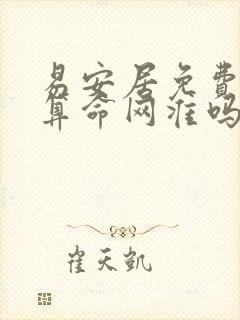 易安居免费
算命网准吗
崔天凯